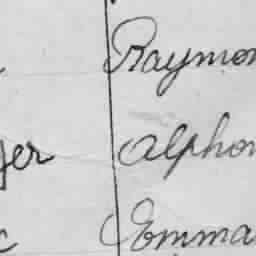 Raymon
ger Alphon
c Emma